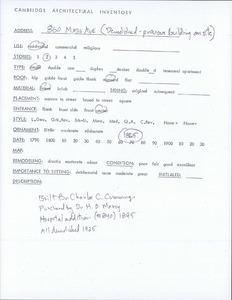 CAMBRIDGE ARCHITECTURAL INVENTORY
ADDRESS: 860 Mass Ave (Demolished - previous building on site)
USE: residential commercial religious
STORIES: 1 2 3 4 5
TYPE: single double row duplex decker double d tenement apartment
ROOF: hip gable mansard flat
MATERIAL: frame brick SIDING: original
PLACEMENT: narrow to street broad to street square
ENTRANCE: front side
STYLE:
ORNAMENT: little moderate elaborate
DATE: 1790 1800 10 20 30 40 50 60 70 80 90 1900 10 20 30
1865
MAP:
REMODELING: drastic moderate minor CONDITION: poor fair good excellent
IMPORTANCE TO SETTING: detrimental none moderate great INITIALED:
DESCRIPTION:
Built by Charles C. Cummings
Purchased by Dr. H. O. Marcy
Hospital addition (#840) 1895
All demolished 1925